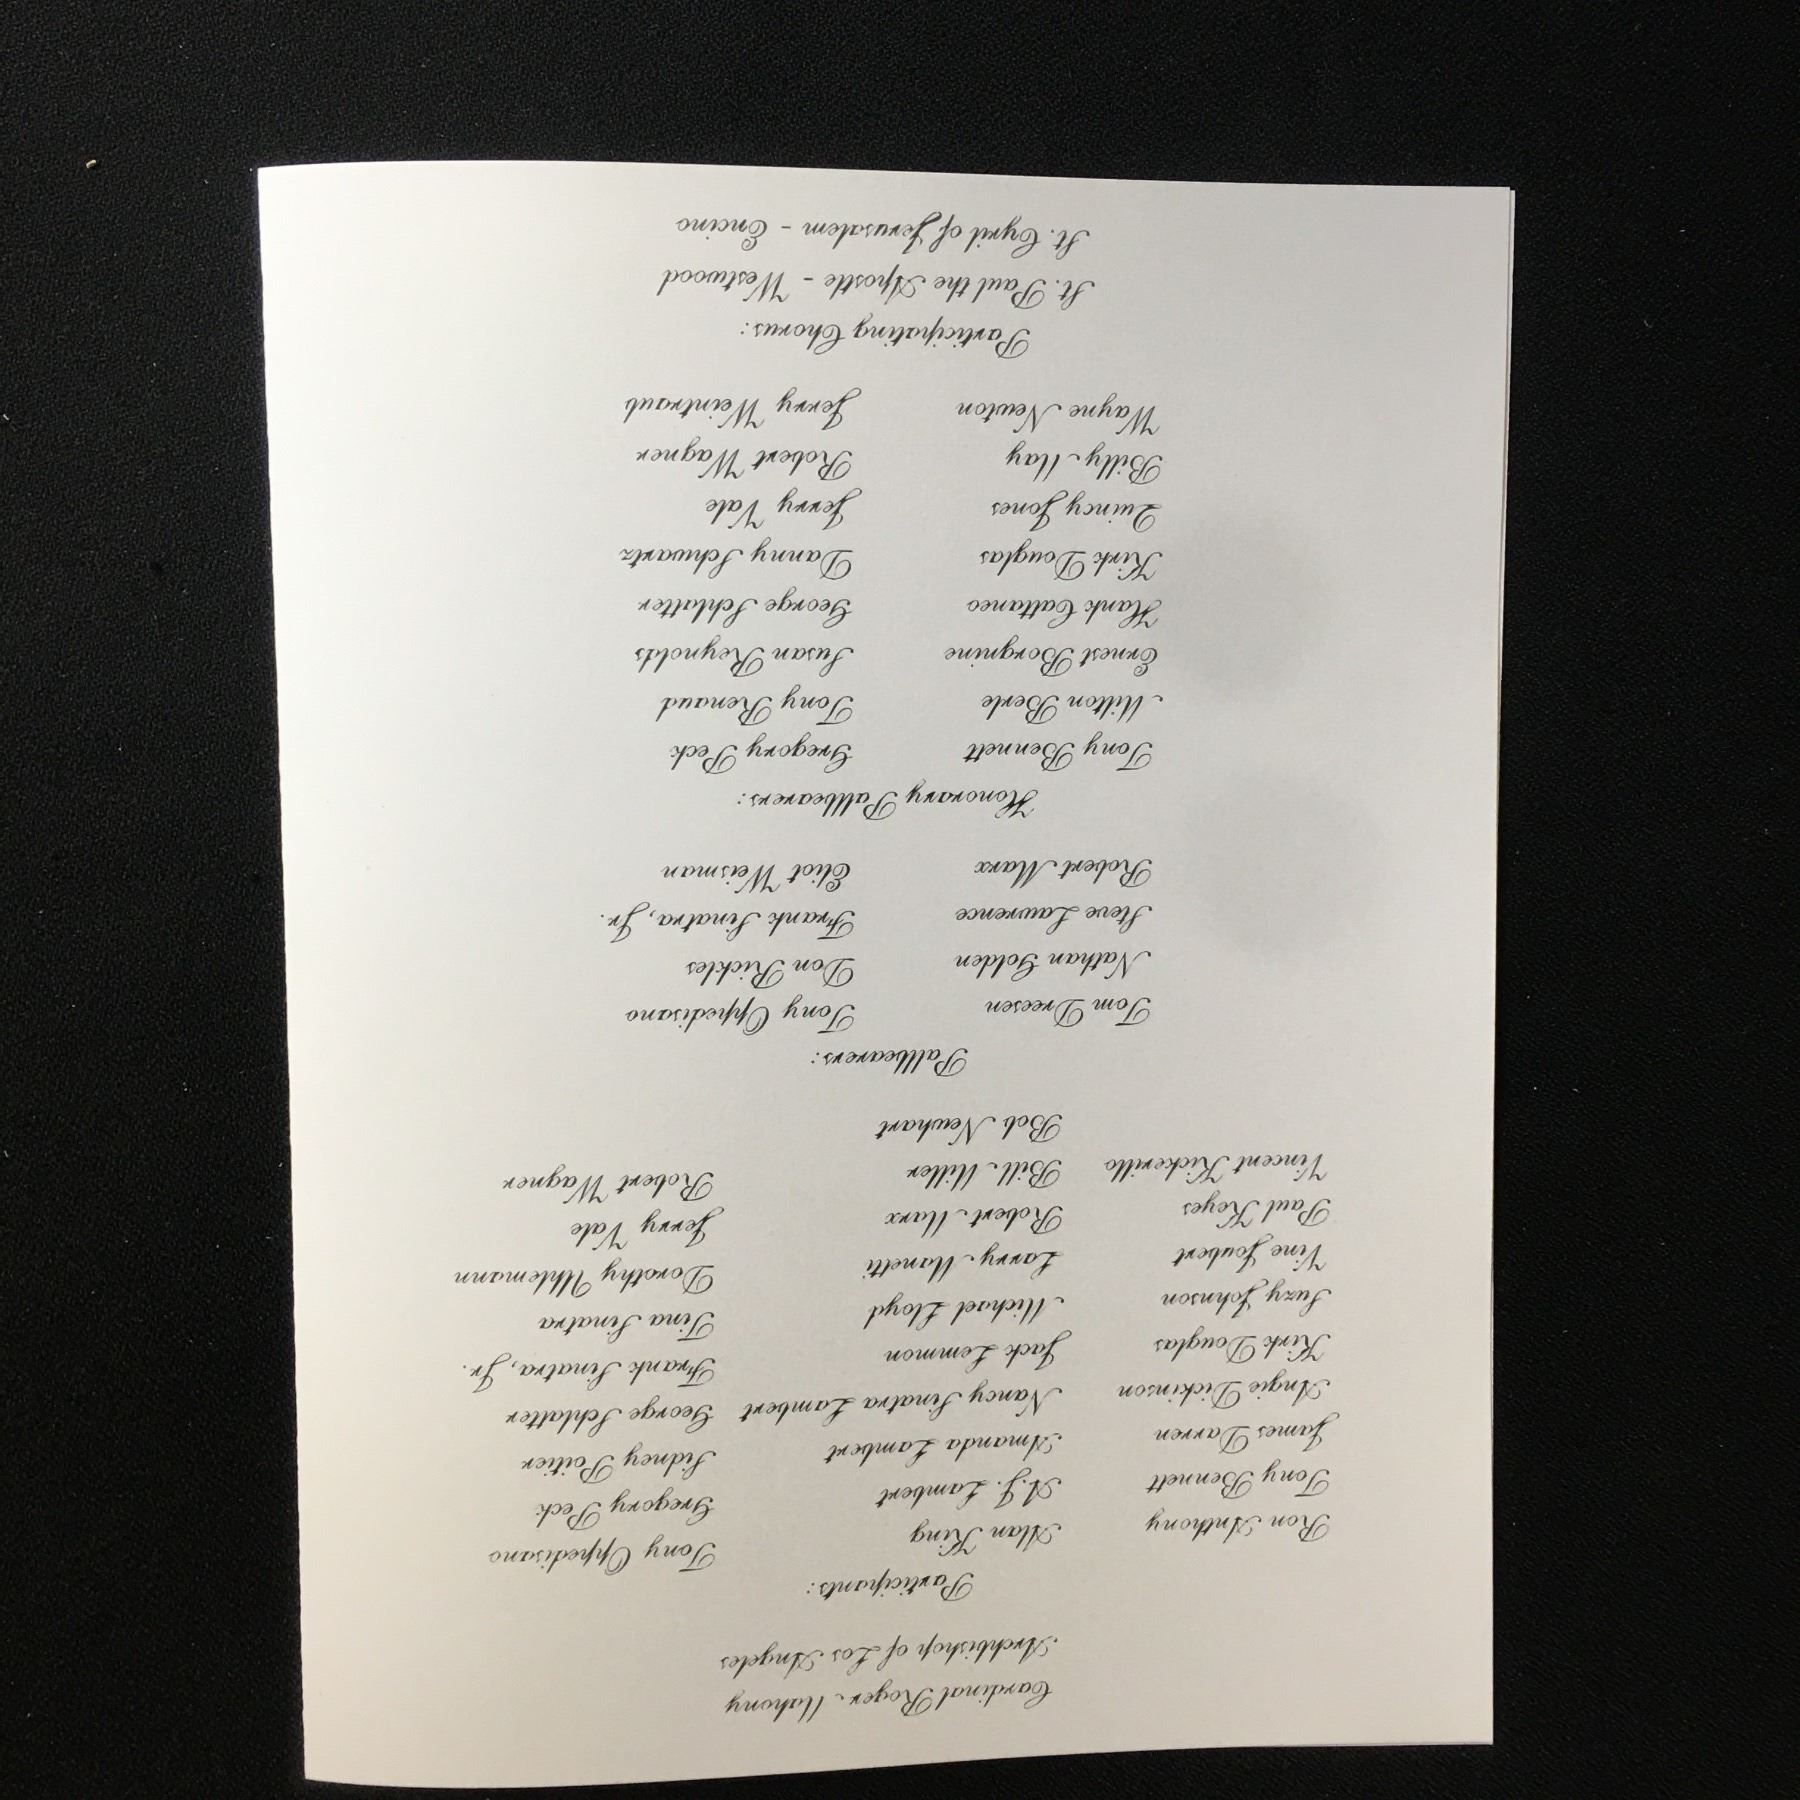 Cardinal Roger Mahony
Archbishop of Los Angeles
Participants:
Ron Anthony Alan King Tony Oppedisano
Tony Bennett A.J. Lambert Gregory Peck
James Darren Amanda Lambert Sidney Poitier
Angie Dickinson Nancy Sinatra Lambert George Schlatter
Kirk Douglas Jack Lemmon Frank Sinatra, Jr.
Suzy Johnson Michael Lloyd Tina Sinatra
Vine Joubert Larry Manetti Dorothy Uhlemann
Paul Keyes Robert Marx Jerry Vale
Vincent Kickerillo Bill Miller Robert Wagner
Bob Newhart
Pallbearers:
Tom Dreesen Tony Oppedisano
Nathan Golden Don Rickles
Steve Lawrence Frank Sinatra, Jr.
Robert Marx Eliot Weisman
Honorary Pallbearers:
Tony Bennett Gregory Peck
Milton Berle Tony Renaud
Ernest Borgnine Susan Reynolds
Hank Cattaneo George Schlatter
Kirk Douglas Danny Schwartz
Quincy Jones Jerry Vale
Billy May Robert Wagner
Wayne Newton Jerry Weintraub
Participating Chorus:
St. Paul the Apostle - Westwood
St. Cyril of Jerusalem - Encino